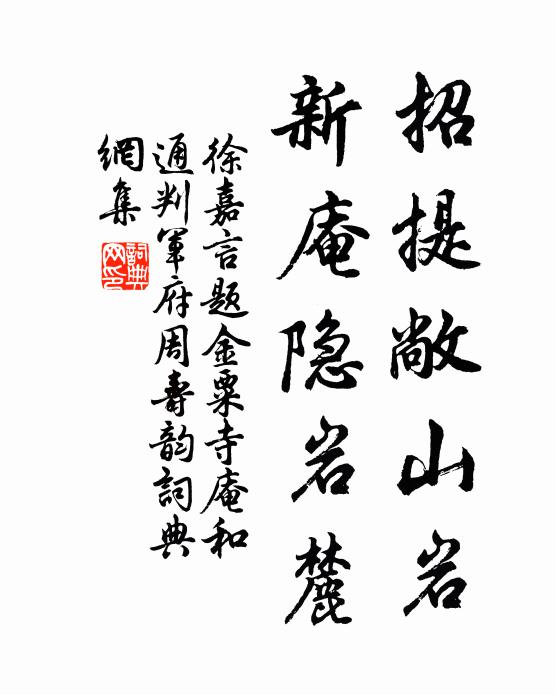 招提敞山岩
新庵隐岩麓
徐嘉言题金粟寺庵和
通判军府周寿韵詞典
網集
詞典
网印